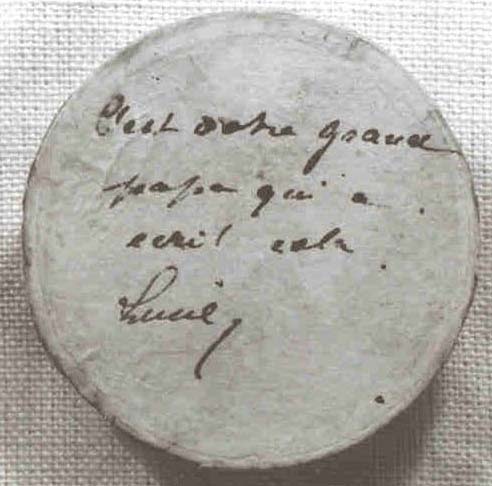 C'est votre grand
papa qui a
ecrit cela
Lucie